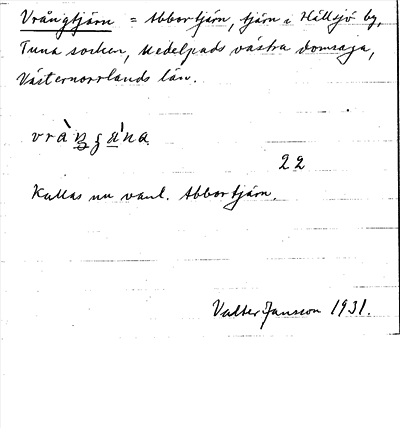 Vrångtjärn = Abbortjärn, tjärn i Hällsjö by,
Tuna socken, Medelpads västra domsaga,
Västernorrlands län.
22
Kallas nu vanl. Abbortjärn.
Valter Jansson 1931.